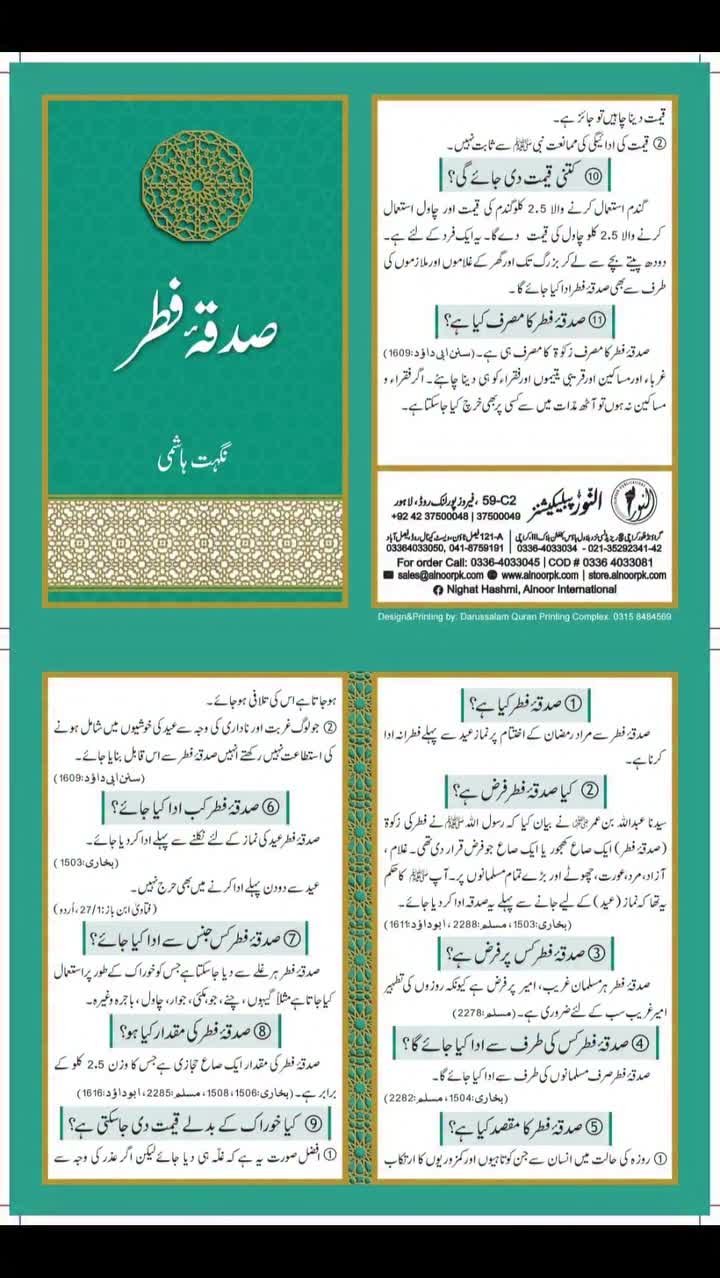 صدقۂ فطر
نگہت ہاشمی
① صدقۂ فطر کیا ہے؟
صدقۂ فطر سے مراد رمضان کے اختتام پر نماز عید سے پہلے فطرانہ ادا
کرنا ہے۔
② کیا صدقۂ فطر فرض ہے؟
سیدنا عبداللہ بن عمر رضی اللہ عنہما نے بیان کیا کہ رسول اللہ ﷺ نے فطر کی زکوٰۃ
(صدقۂ فطر) ایک صاع کھجور یا ایک صاع جو فرض قرار دی تھی۔ غلام،
آزاد، مرد، عورت، چھوٹے اور بڑے تمام مسلمانوں پر۔ آپ ﷺ کا حکم
یہ تھا کہ نماز (عید) کے لیے جانے سے پہلے یہ صدقہ ادا کر دیا جائے۔
(بخاری:1503، مسلم:2288، ابوداؤد:1611)
③ صدقۂ فطر کس پر فرض ہے؟
صدقۂ فطر ہر مسلمان غریب، امیر پر فرض ہے کیونکہ روزوں کی تطہیر
امیر غریب سب کے لئے ضروری ہے۔ (مسلم:2278)
④ صدقۂ فطر کس کی طرف سے ادا کیا جائے گا؟
صدقۂ فطر صرف مسلمانوں کی طرف سے ادا کیا جائے گا۔
(بخاری:1504، مسلم:2282)
⑤ صدقۂ فطر کا مقصد کیا ہے؟
① روزہ کی حالت میں انسان سے جن کوتاہیوں اور کمزوریوں کا ارتکاب
ہو جاتا ہے اس کی تلافی ہو جائے۔
② جو لوگ غربت اور ناداری کی وجہ سے عید کی خوشیوں میں شامل ہونے
کی استطاعت نہیں رکھتے انہیں صدقۂ فطر سے اس قابل بنایا جائے۔
(سنن ابی داؤد:1609)
⑥ صدقۂ فطر کب ادا کیا جائے؟
صدقۂ فطر عید کی نماز کے لئے نکلنے سے پہلے ادا کر دیا جائے۔
(بخاری:1503)
عید سے دو دن پہلے ادا کرنے میں بھی حرج نہیں۔
(فتاویٰ ابن باز:27/1، اُردو)
⑦ صدقۂ فطر کس جنس سے ادا کیا جائے؟
صدقۂ فطر ہر غلے سے دیا جا سکتا ہے جس کو خوراک کے طور پر استعمال
کیا جاتا ہے مثلاً گیہوں، چنے، جو، مکئی، جوار، چاول، باجرہ وغیرہ۔
⑧ صدقۂ فطر کی مقدار کیا ہو؟
صدقۂ فطر کی مقدار ایک صاع حجازی ہے جس کا وزن 2.5 کلو کے
برابر ہے۔ (بخاری:1506، 1508، مسلم:2285، ابوداؤد:1616)
⑨ کیا خوراک کے بدلے قیمت دی جا سکتی ہے؟
① افضل صورت یہ ہے کہ غلّہ ہی دیا جائے لیکن اگر عذر کی وجہ سے
قیمت دینا چاہیں تو جائز ہے۔
② قیمت کی ادائیگی کی ممانعت نبی ﷺ سے ثابت نہیں۔
⑩ کتنی قیمت دی جائے گی؟
گندم استعمال کرنے والا 2.5 کلو گندم کی قیمت اور چاول استعمال
کرنے والا 2.5 کلو چاول کی قیمت دے گا۔ یہ ایک فرد کے لئے ہے۔
دودھ پیتے بچے سے لے کر بزرگ تک اور گھر کے غلاموں اور ملازموں کی
طرف سے بھی صدقۂ فطر ادا کیا جائے گا۔
⑪ صدقۂ فطر کا مصرف کیا ہے؟
صدقۂ فطر کا مصرف زکوٰۃ کا مصرف ہی ہے۔ (سنن ابی داؤد:1609)
غرباء اور مساکین اور قریبی یتیموں اور فقراء کو ہی دینا چاہئے۔ اگر فقراء و
مساکین نہ ہوں تو آٹھ مدّات میں سے کسی پر بھی خرچ کیا جا سکتا ہے۔
النور پبلیکیشنز
59-C2، فیروزپور لنک روڈ، لاہور
+92 42 37500048 | 37500049
0336-4033034 - 021-35292341-42
03364033050, 041-8759191
For order Call: 0336-4033045 | COD # 0336 4033081
sales@alnoorpk.com www.alnoorpk.com | store.alnoorpk.com
Nighat Hashmi, Alnoor International
Design&Printing by: Darussalam Quran Printing Complex. 0315 8484569